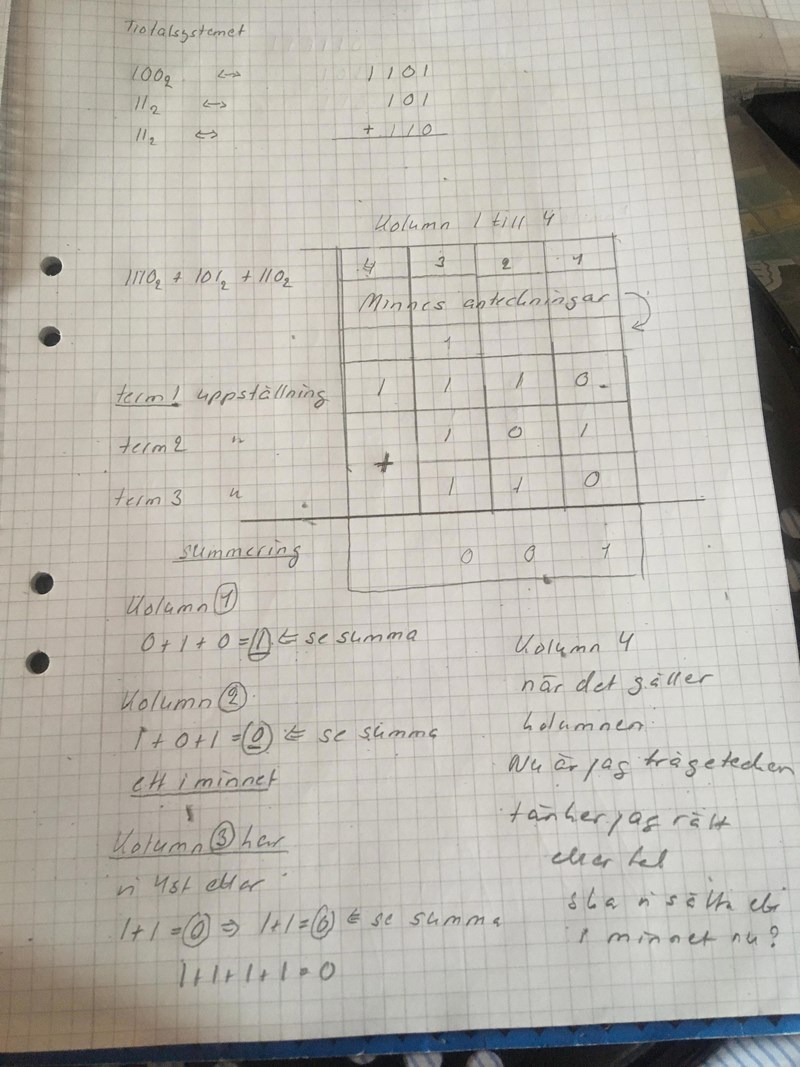 Tiotalsystemet
100₂ ⇔ 1101
11₂ ⇔ 101
11₂ ⇔ + 110
Kolumn 1 till 4
1110₂ + 101₂ + 110₂
4 3 2 1
Minnes anteckningar
1
term 1 uppställning 1 1 1 0
term 2 " 1 0 1
+
term 3 " 1 1 0
summering 0 0 1
Kolumn 1
0 + 1 + 0 = 1 ⇐ se summa
Kolumn 2
1 + 0 + 1 = 0 ⇐ se summa
ett i minnet
Kolumn 3 har
vi 4st ettor
1+1 = 0 ⇒ 1+1 = 0 ⇐ se summa
1+1+1+1 = 0
Kolumn 4
när det gäller
kolumnen
Nu är jag frågetecken
tänker jag rätt
eller fel
ska vi sätta
i minnet nu?